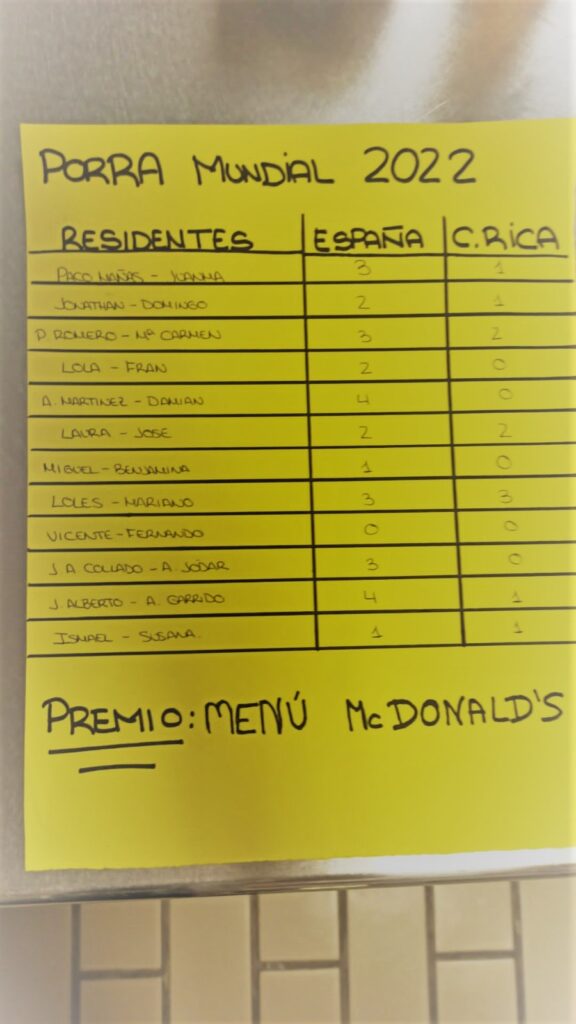 PORRA MUNDIAL 2022
RESIDENTES ESPAÑA C.RICA
PACO MAÑAS - JUANMA 3 1
JONATHAN - DOMINGO 2 1
P. ROMERO - Mª CARMEN 3 2
LOLA - FRAN 2 0
A. MARTINEZ - DAMIAN 4 0
LAURA - JOSE 2 2
MIGUEL - BENJAMINA 1 0
LOLES - MARIANO 3 3
VICENTE - FERNANDO 0 0
J.A COLLADO - A. JÓDAR 3 0
J. ALBERTO - A. GARRIDO 4 1
ISMAEL - SUSANA. 1 1
PREMIO: MENÚ McDONALD'S